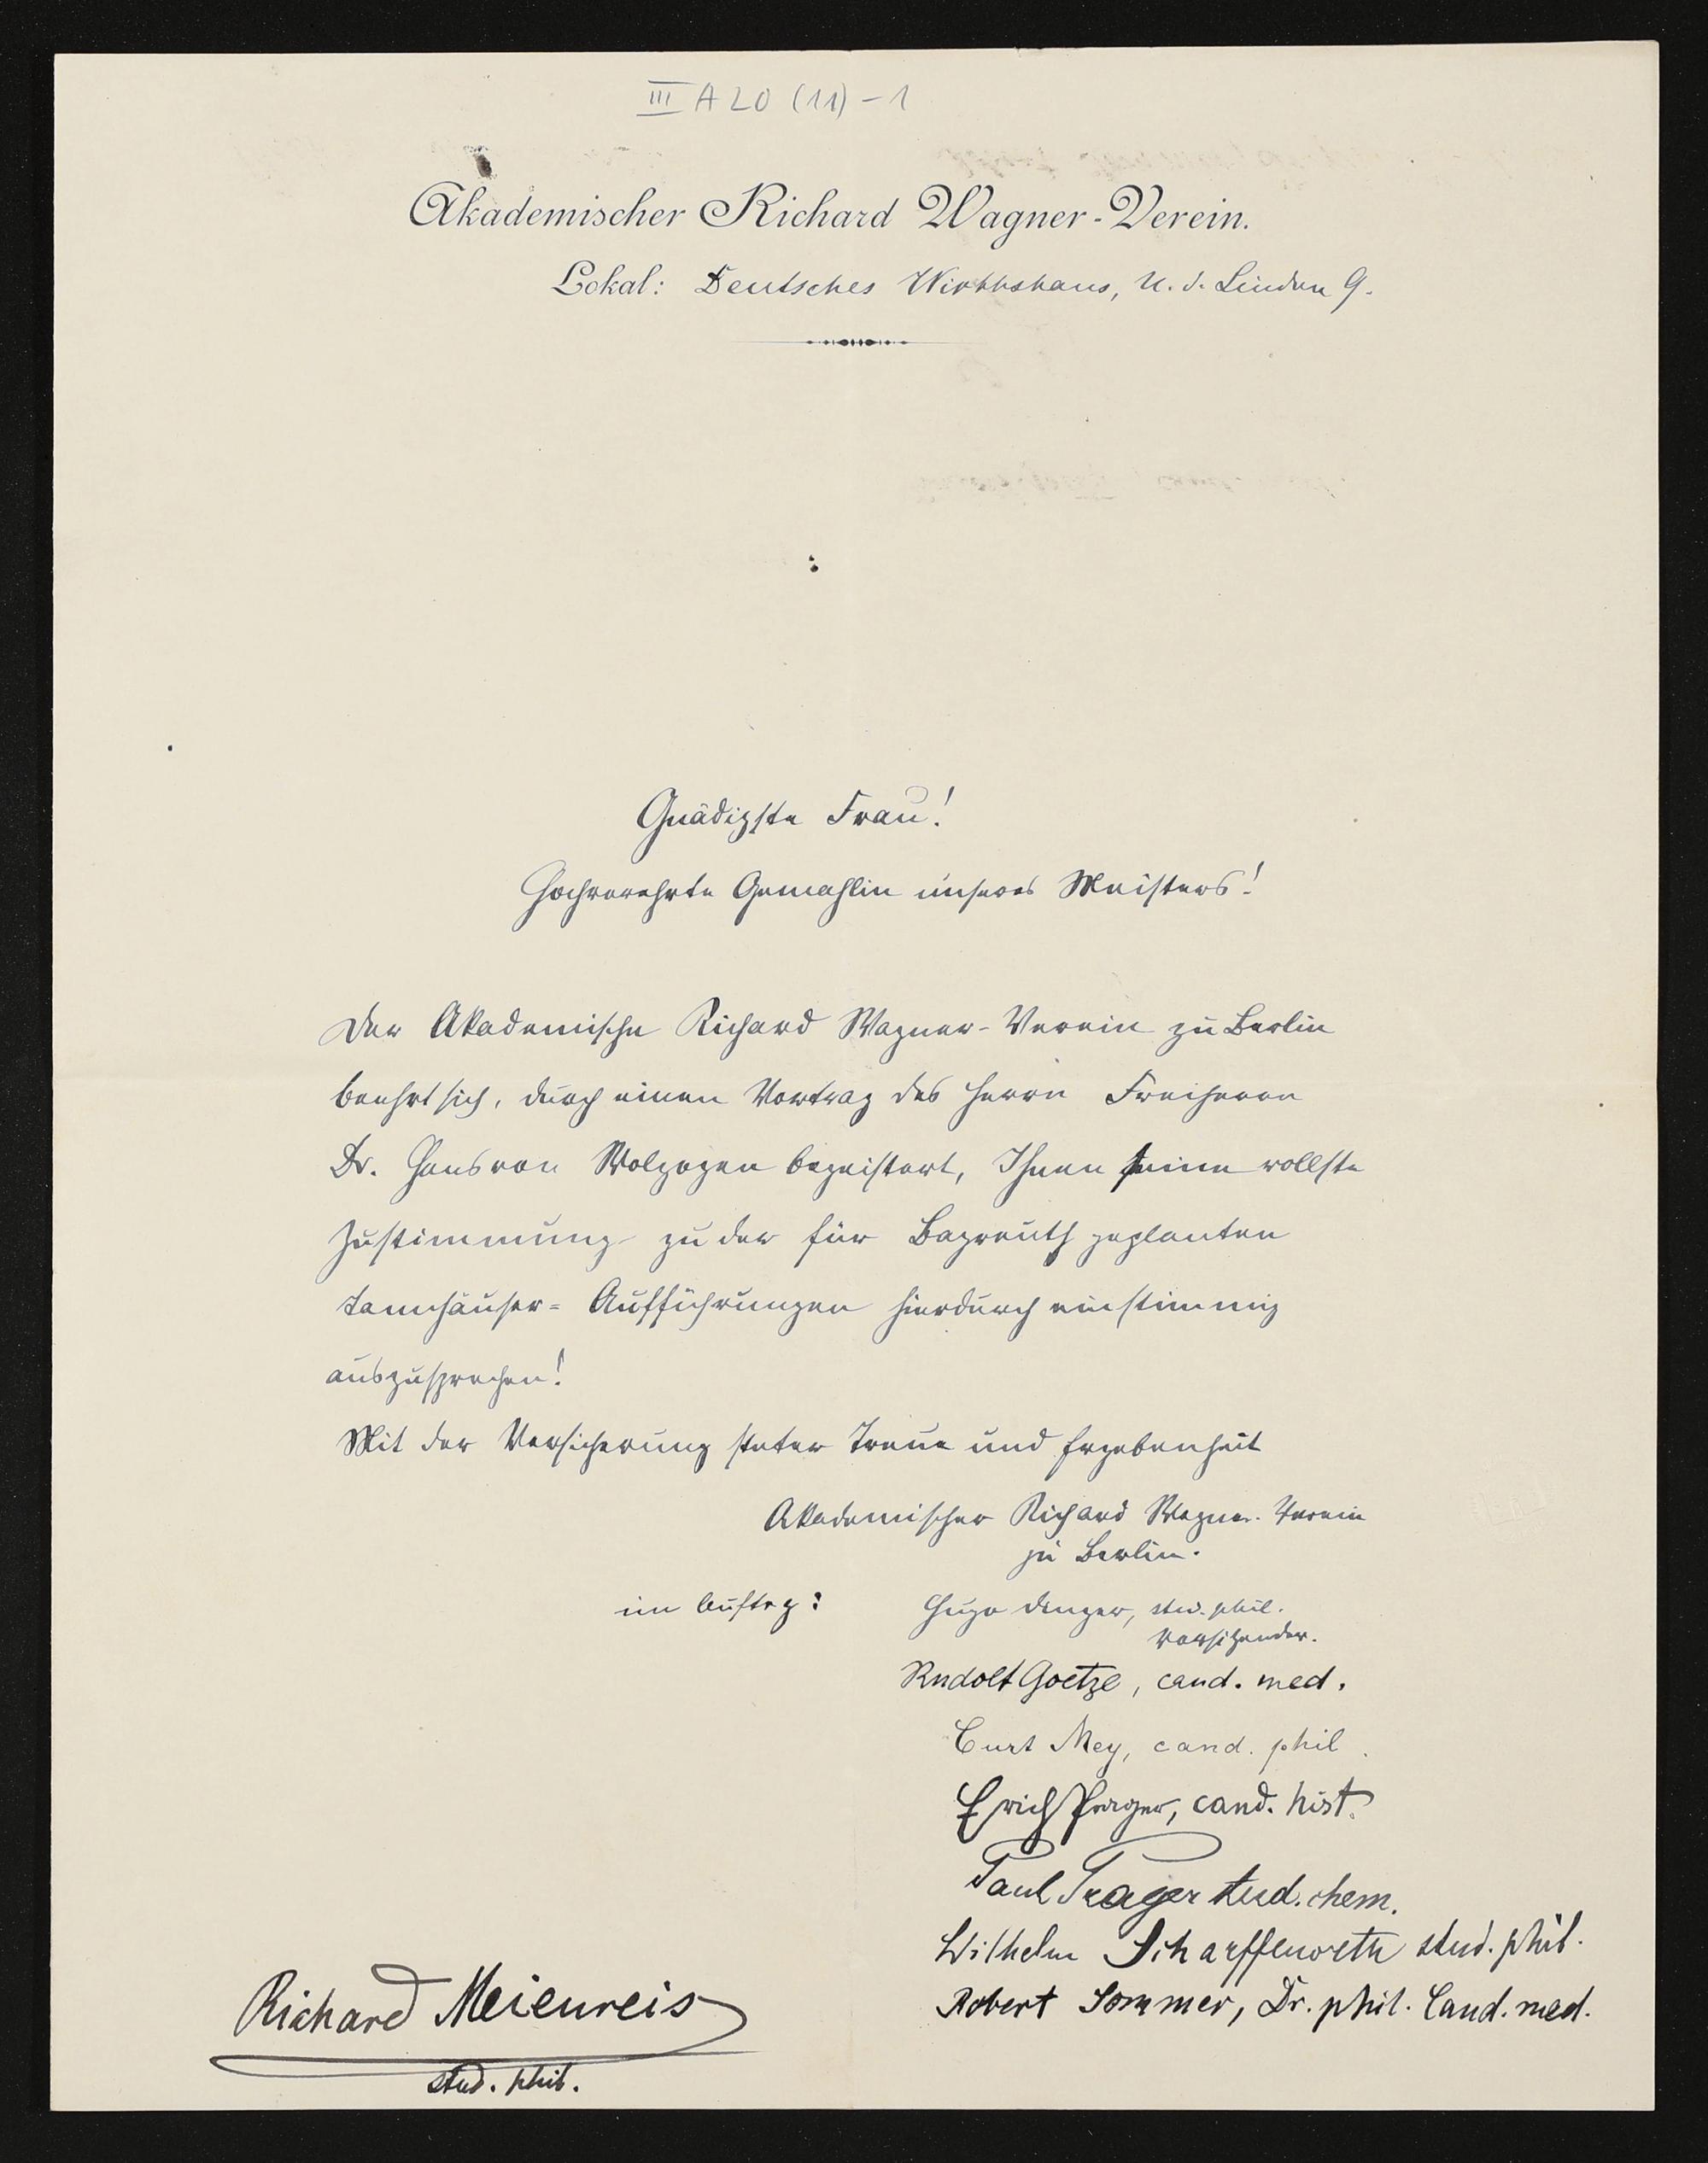 III A 20 (11) - 1
Akademischer Richard Wagner-Verein.
Lokal: Deutsches Wirthshaus, U. d. Linden 9.
Gnädigste Frau!
Hochverehrte Gemahlin unseres Meisters!
Der Akademische Richard Wagner-Verein zu Berlin
beehrt sich, durch einen Vortrag des Herrn Freiherrn
Dr. Hans von Wolzogen begeistert, Ihnen seine vollste
Zustimmung zu der für Bayreuth geplanten
Tannhäuser-Aufführungen hierdurch einstimmig
auszusprechen!
Mit der Versicherung steter Treue und Ergebenheit
Akademischer Richard Wagner-Verein
zu Berlin.
im Auftrg: Hugo Dinger, stud. phil.
Vorsitzender.
Rudolf Goetze, cand. med.
Curt Mey, cand. phil.
Erich Prager, cand. hist.
Paul Trager stud. chem.
Wilhelm Scharffenorth stud. phil.
Robert Sommer, Dr. phil. Cand. med.
Richard Meienreis
stud. phil.